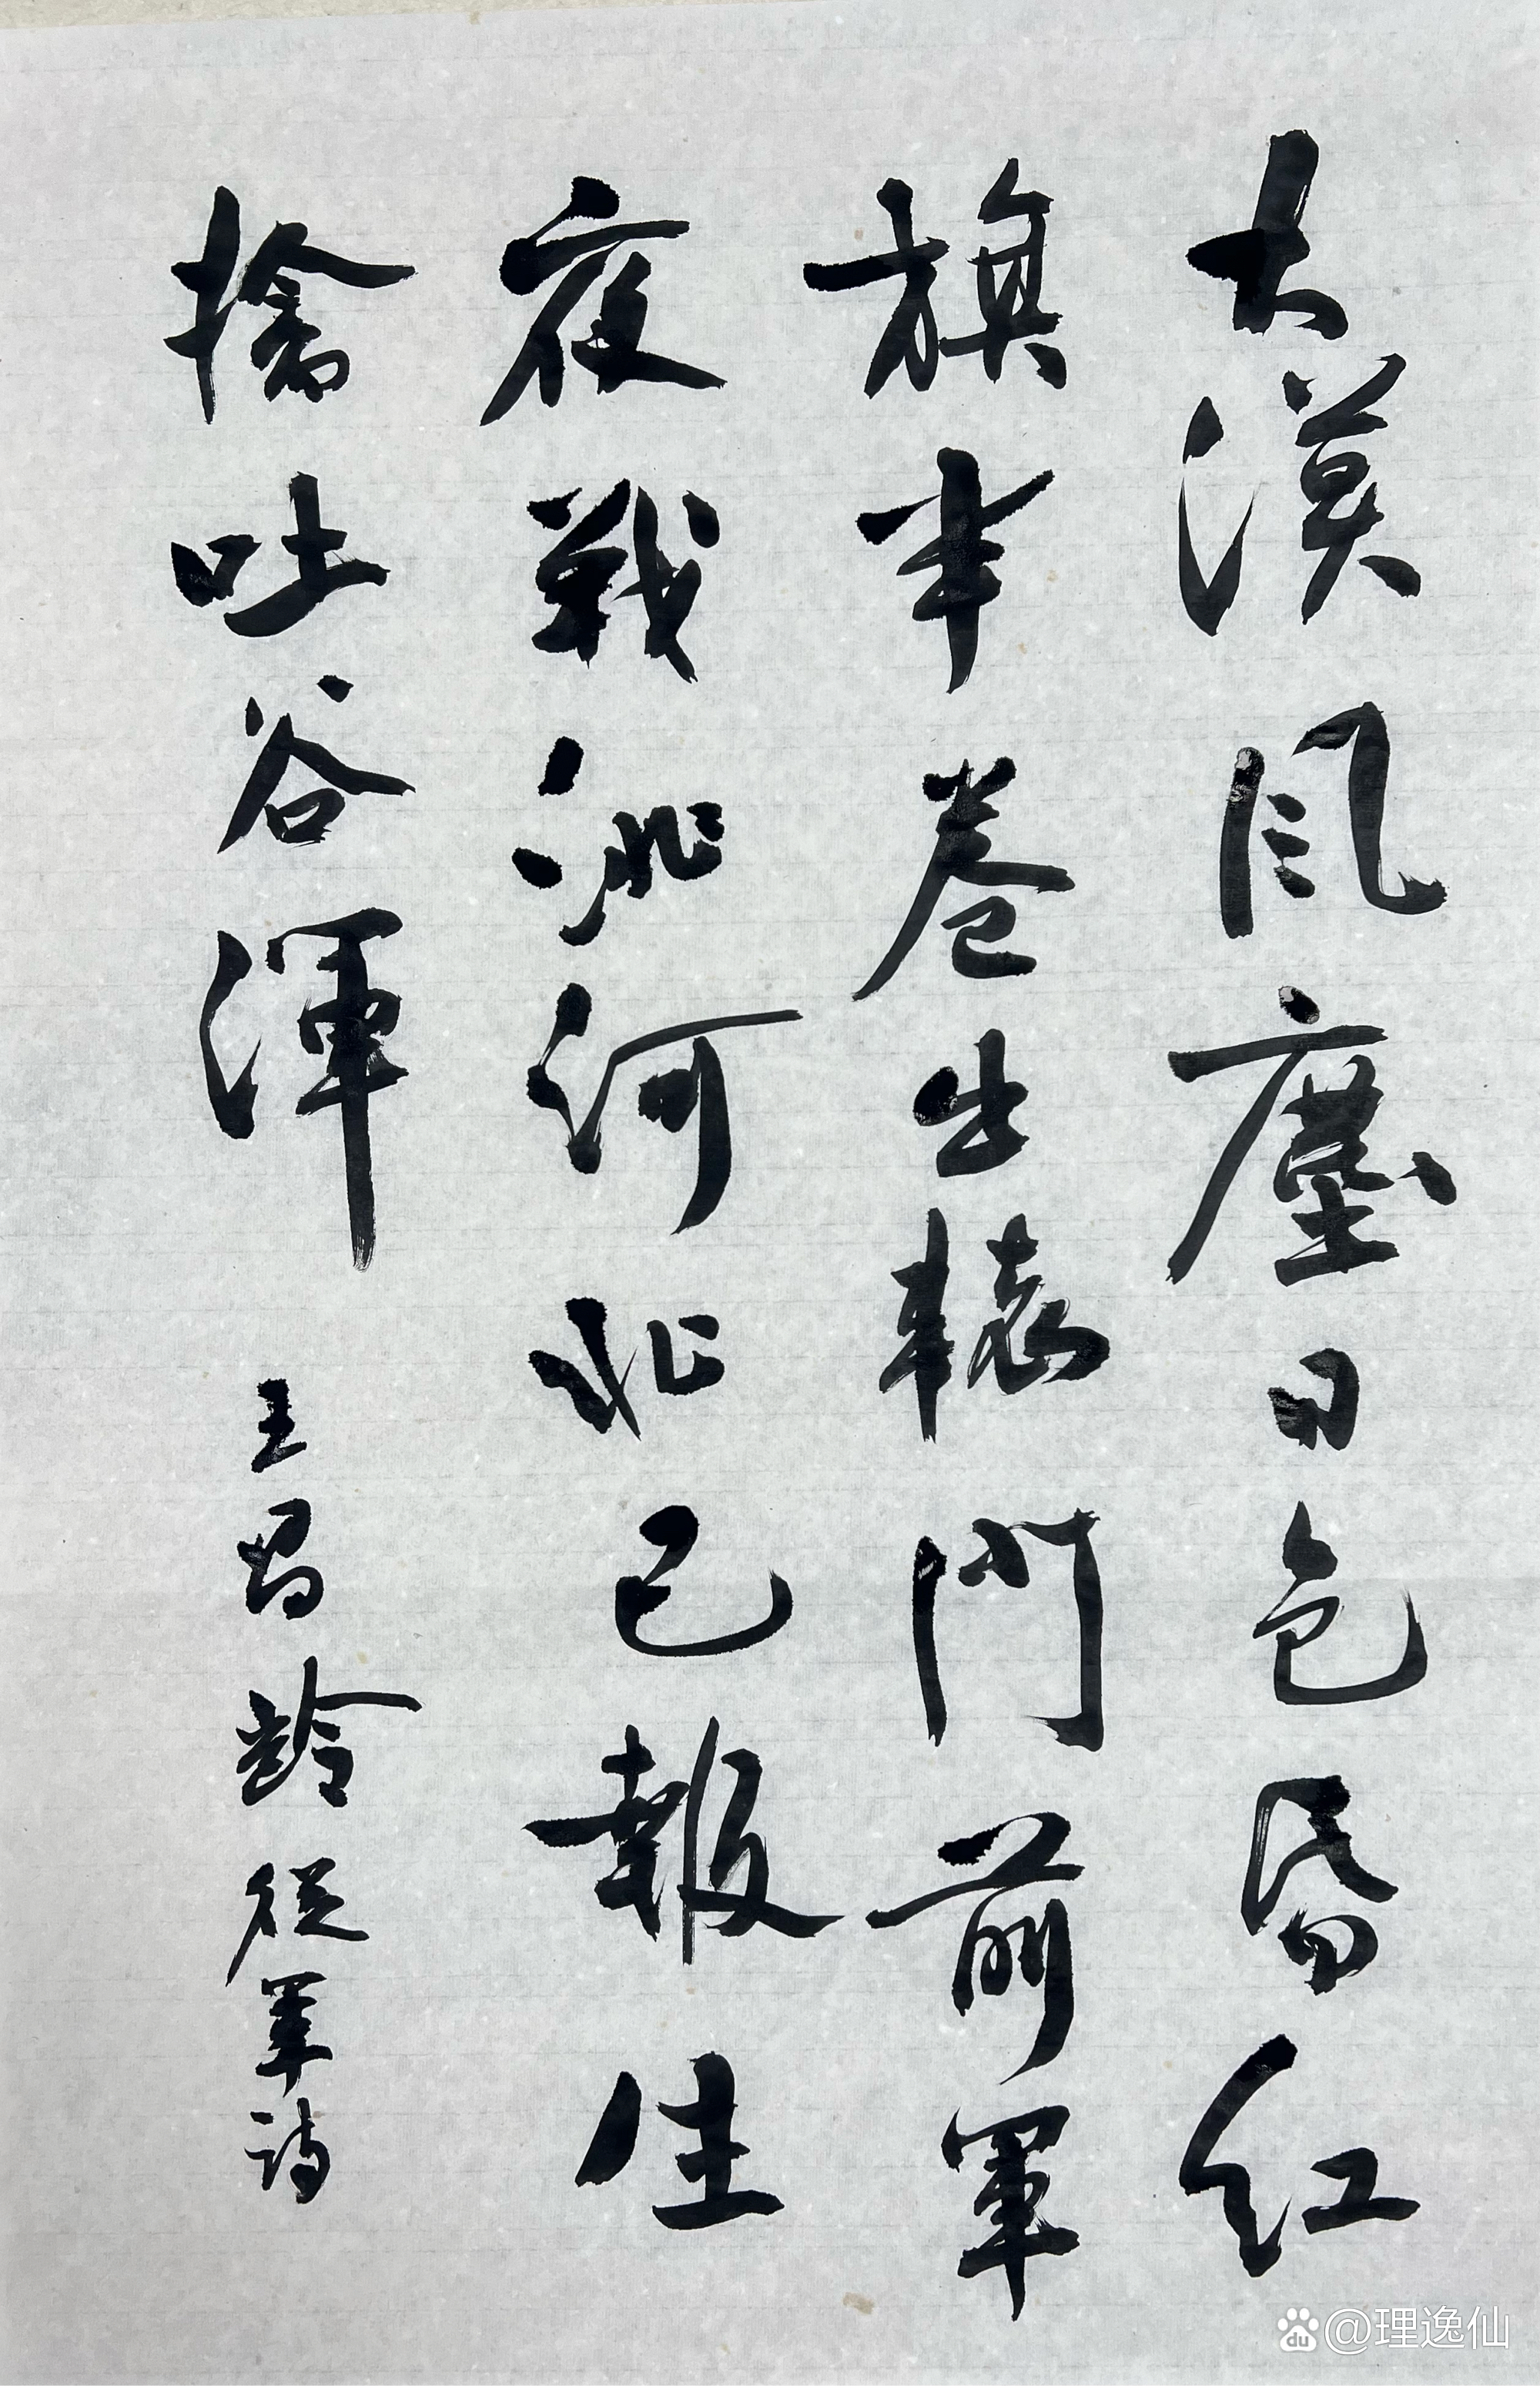 大漠風塵日色昏紅
旗半卷出轅門前軍
夜戰洮河北已報生
擒吐谷渾 王昌齡從軍詩
du @理逸仙